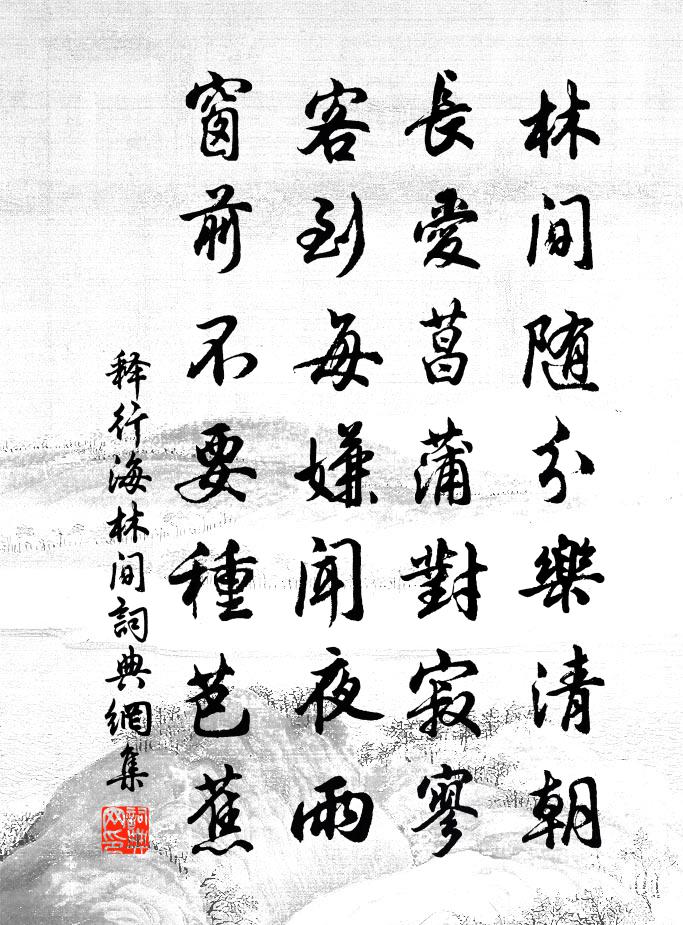 林間随分樂清朝
長愛菖蒲對寂寥
客到每嫌聞夜雨
窗前不要種芭蕉
释行海林间詞典網集
詞典网印